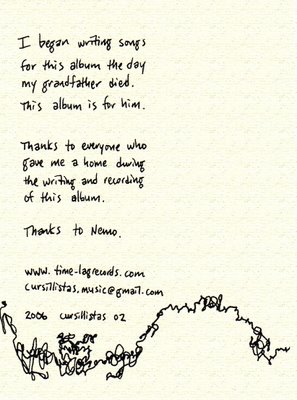 I began writing songs
for this album the day
my grandfather died.
This album is for him.
Thanks to everyone who
gave me a home during
the writing and recording
of this album.
Thanks to Nemo.
www.time-lagrecords.com
cursillistas.music@gmail.com
2006 cursillistas 02